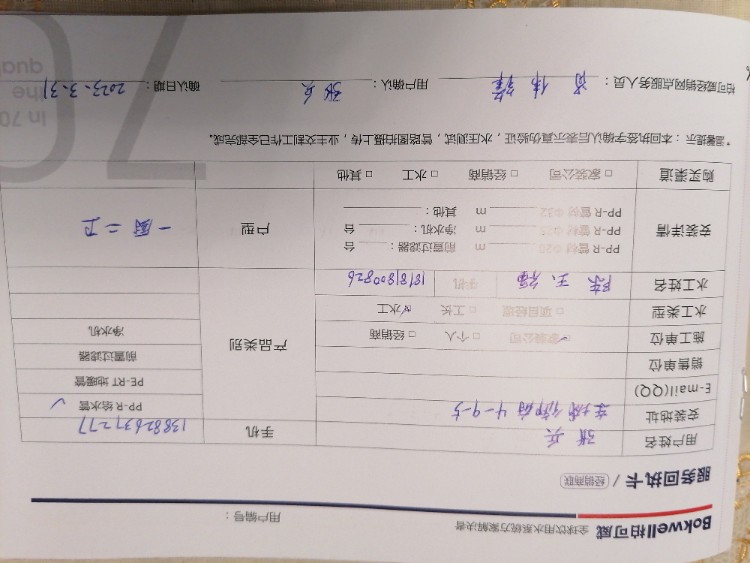 Bokwell柏可威 全球饮用水系统方案解决者
用户编号：
服务回执卡 / 经销商联
用户姓名 张兵 手机 13882637277
安装地址 莲城御府4-9-5
E-mail(QQ)
销售单位
施工单位 家装公司 个人 经销商
水工类型 项目经理 工长 水工
水工姓名 陈玉福 手机 18181800826
产品类别
PP-R 给水管 ✓
PE-RT 地暖管
前置过滤器
净水机
安装详情
PP-R 管材 Φ20 m 前置过滤器： 台
PP-R 管材 Φ25 m 净水机： 台
PP-R 管材 Φ32 m 其他：
户型 一厨二卫
购买渠道 家装公司 经销商 水工 其他
*温馨提示：本回执签字确认后表示真伪验证，水压测试，管路图拍摄上传，业主交割工作已全部完成。
柏可威经销网点服务人员： 用户确认： 张兵 确认日期： 2023-3-31
In 70
the
qua